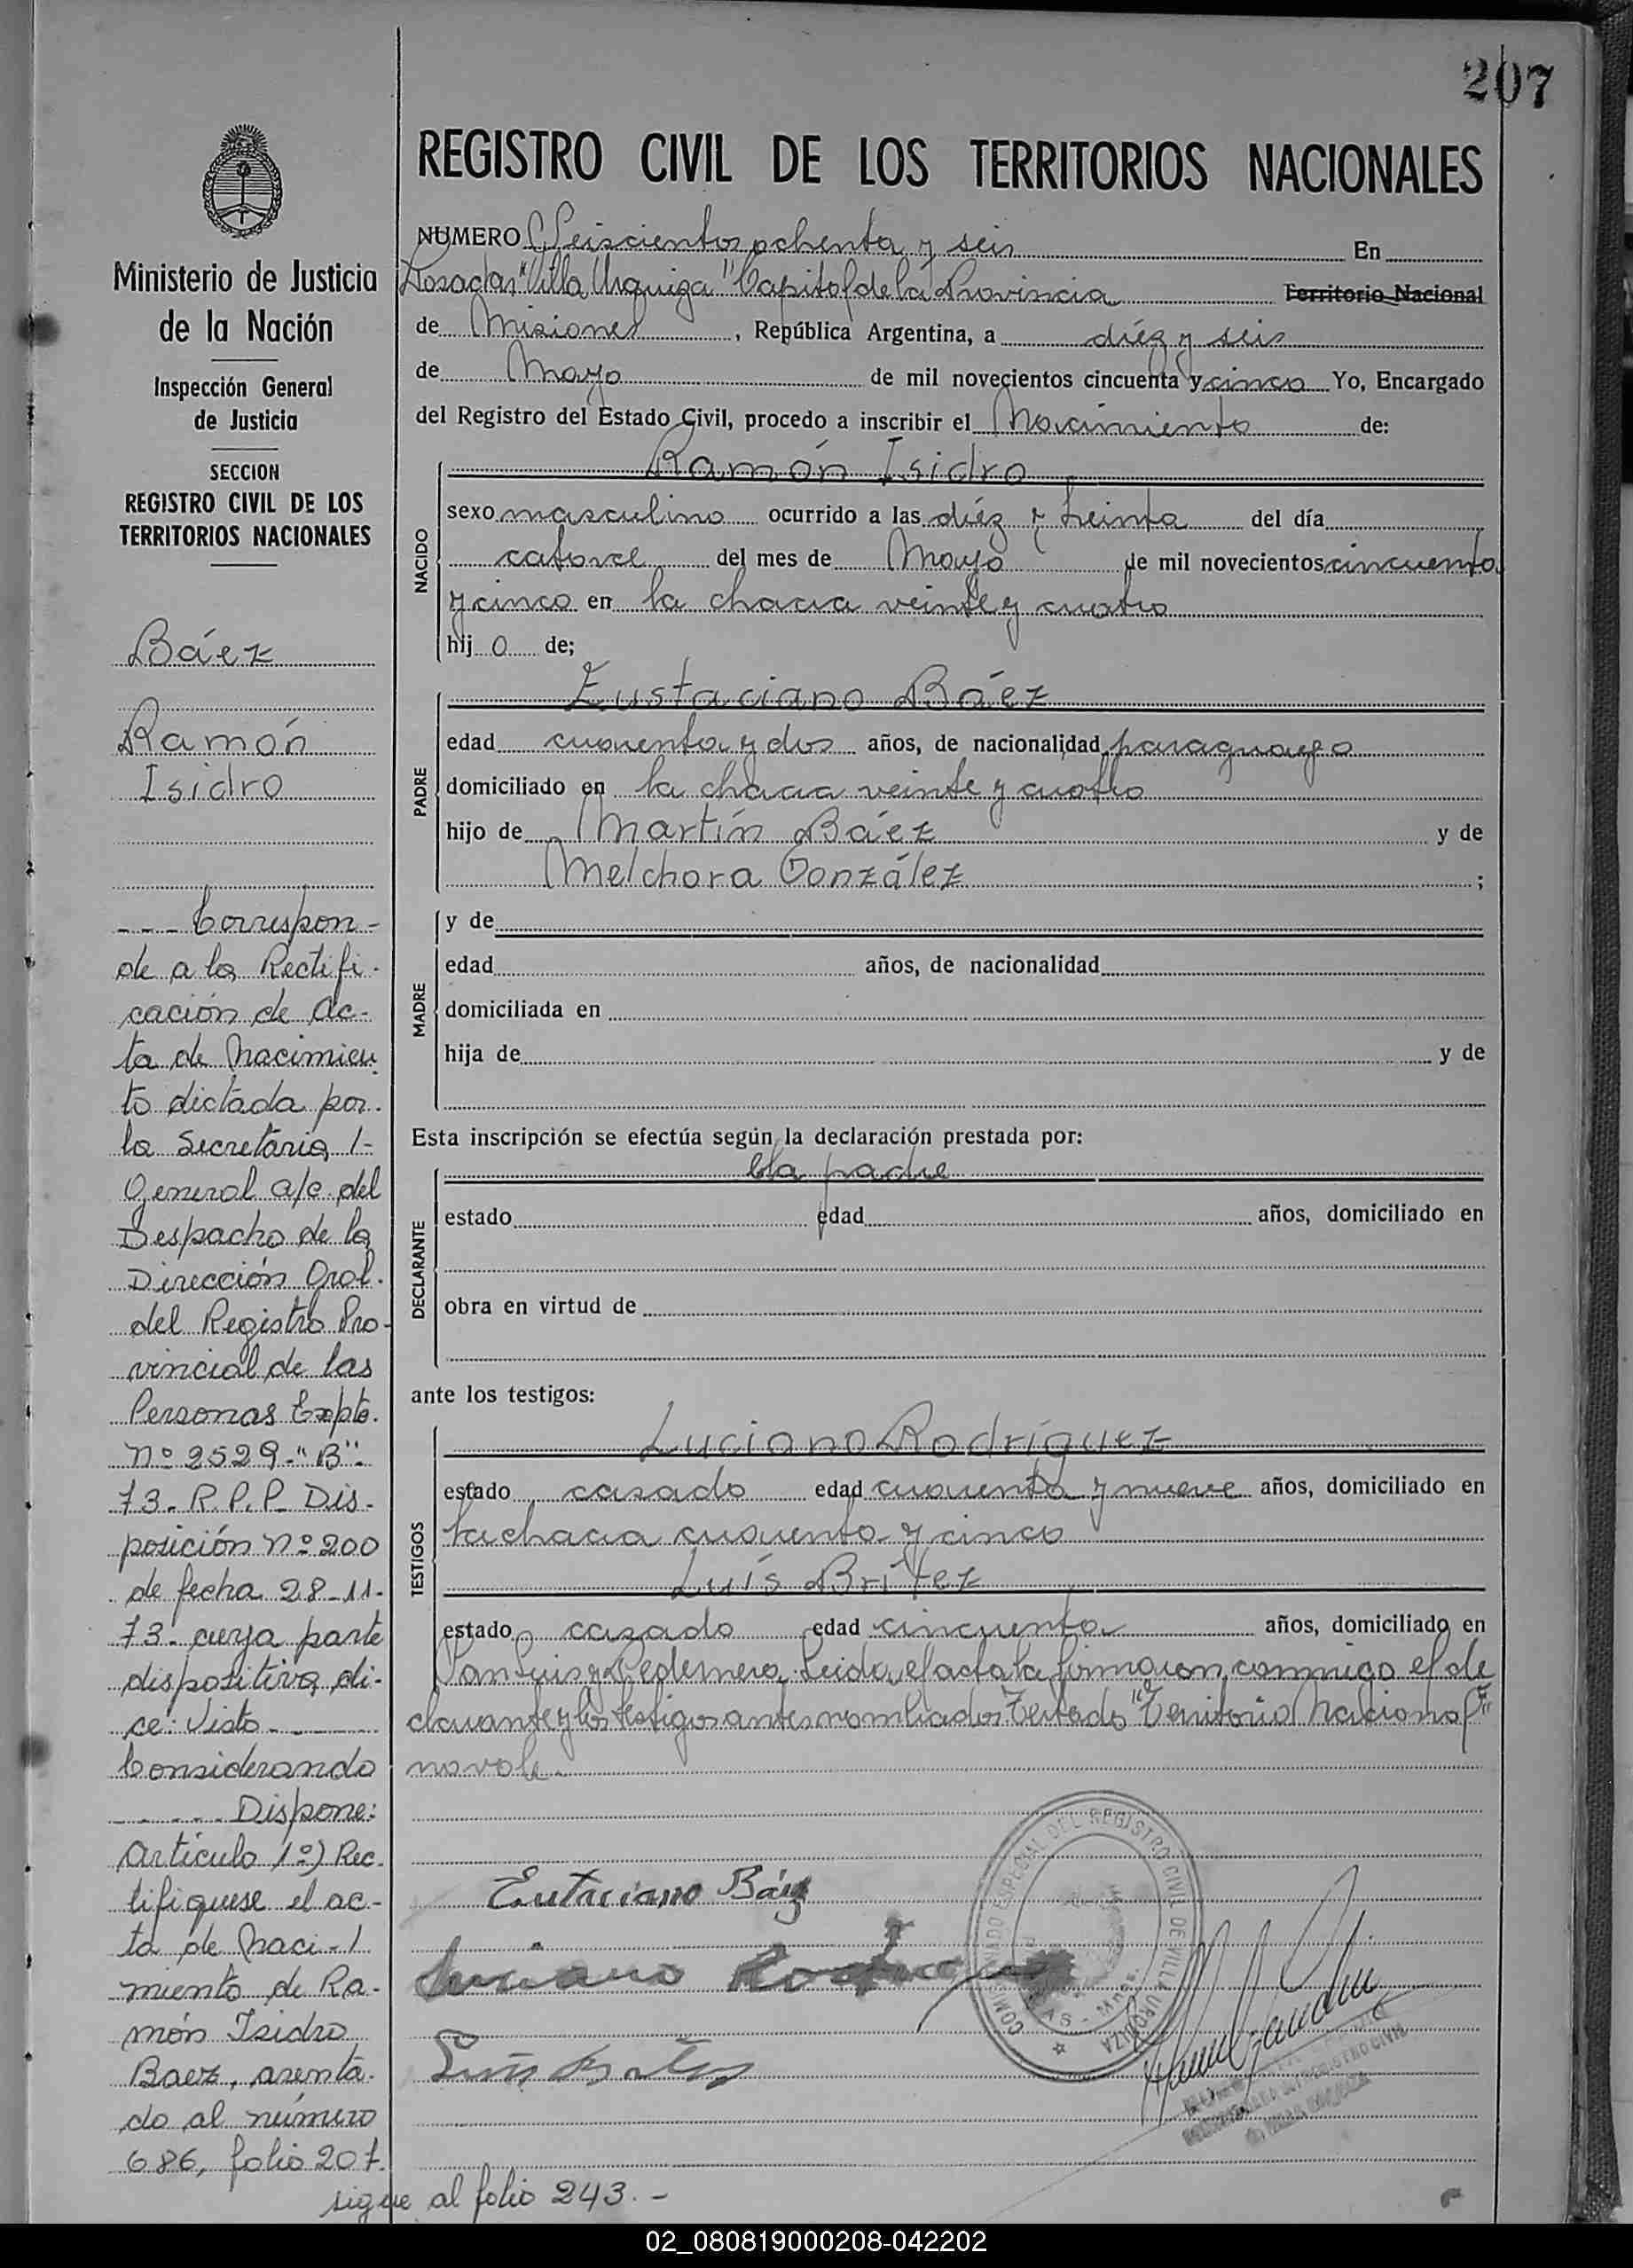 207
REGISTRO CIVIL DE LOS TERRITORIOS NACIONALES
Ministerio de Justicia
de la Nación
Inspección General
de Justicia
SECCION
REGISTRO CIVIL DE LOS
TERRITORIOS NACIONALES
Báez
Ramón
Isidro
--- Correspon-
de a la Rectifi-
cación de Ac-
ta de Nacimien
to dictada por
la Secretaria
General a/c del
Despacho de la
Dirección Gral.
del Registro Pro-
vincial de las
Personas Expte.
Nº 2529-"B"-
73- R.P.P. Dis-
posición Nº 200
de fecha 28-11-
73- cuya parte
dispositiva di-
ce: Visto
Considerando
Dispone:
Artículo 1º) Rec-
tifiquese el ac-
ta de Naci-
miento de Ra-
món Isidro
Baez, asenta-
do al número
686, folio 207.
sigue al folio 243.-
NUMERO Seiscientos ochenta y seis En
Posadas "Villa Urquiza" Capital de la Provincia Territorio Nacional
de Misiones, República Argentina, a diéz y seis
de Mayo de mil novecientos cincuenta y cinco Yo, Encargado
del Registro del Estado Civil, procedo a inscribir el Nacimiento de:
Ramón Isidro
NACIDO
sexo masculino ocurrido a las diéz y treinta del día
catorce del mes de Mayo de mil novecientos cincuenta
y cinco en la chacra veinte y cuatro
hij o de;
Eustaciano Báez
PADRE
edad cuarenta y dos años, de nacionalidad paraguayo
domiciliado en la chacra veinte y cuatro
hijo de Martín Báez y de
Melchora González ;
MADRE
y de
edad años, de nacionalidad
domiciliada en
hija de y de
Esta inscripción se efectúa según la declaración prestada por:
padre
DECLARANTE
estado edad años, domiciliado en
obra en virtud de
ante los testigos:
TESTIGOS
Luciano Rodríguez
estado casado edad cuarenta y nueve años, domiciliado en
la chacra cuarenta y cinco
Luís Brítez
estado casado edad cincuenta años, domiciliado en
San Luis y Pedernera. Leida el acta la firmaron conmigo el de
clarante y los testigos antes nombrados. Testado "Territorio Nacional"
no vale.-
Eutaciano Báez
Luciano Rodríguez
COMISIONADO ESPECIAL DEL REGISTRO CIVIL DE VILLA URQUIZA
02_080819000208-042202